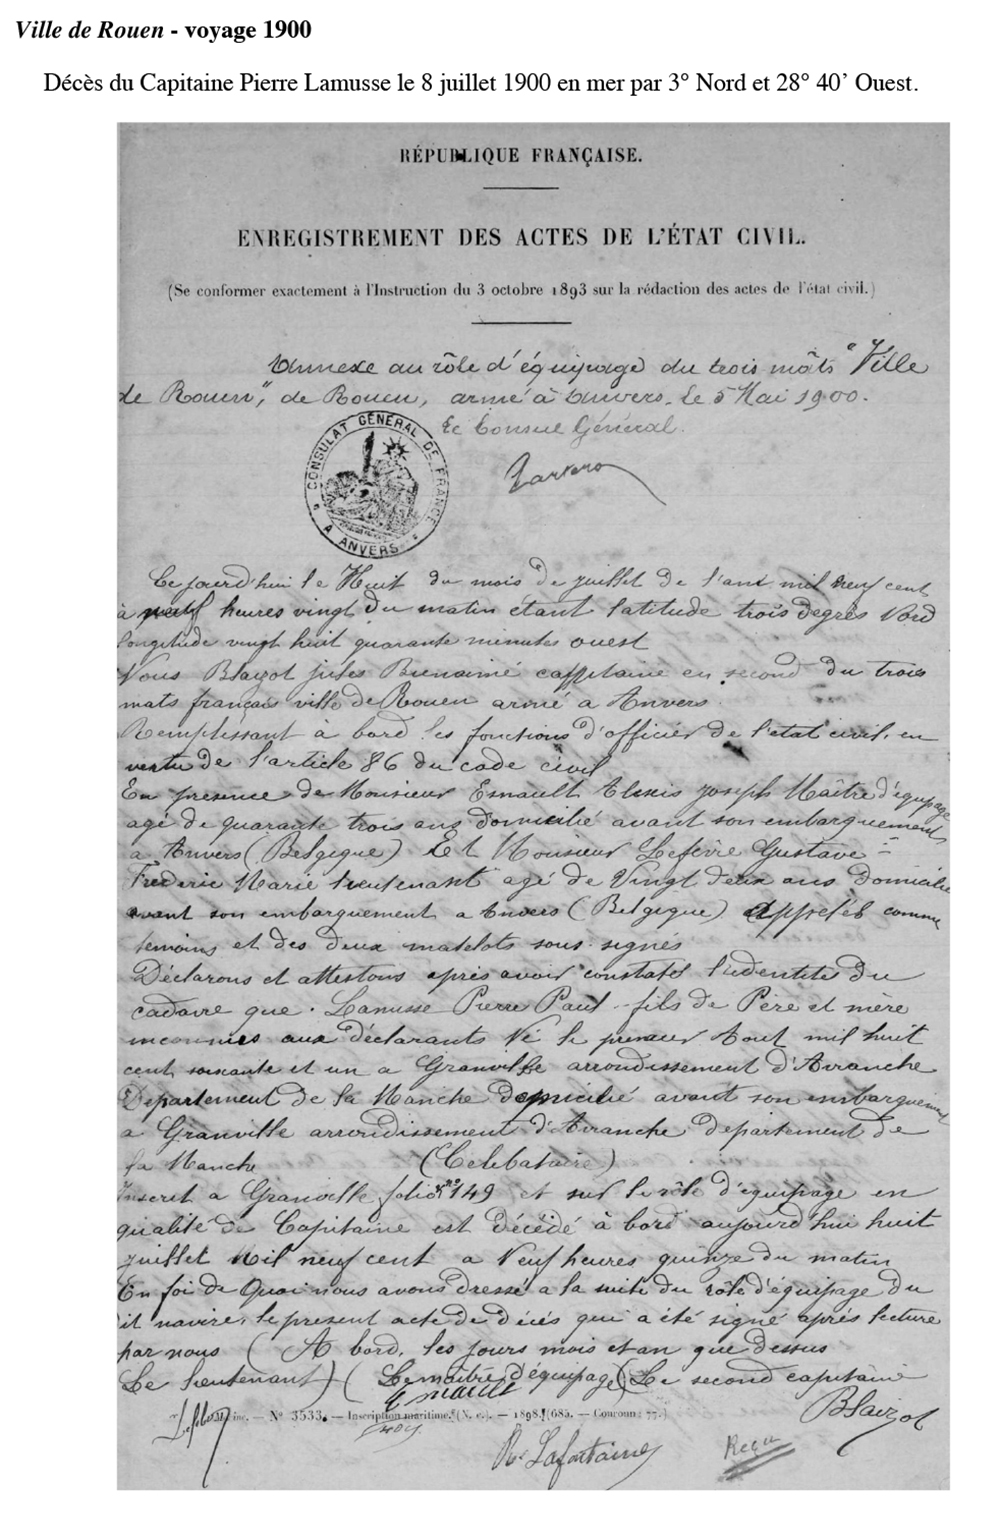 Ville de Rouen - voyage 1900
Décès du Capitaine Pierre Lamusse le 8 juillet 1900 en mer par 3° Nord et 28° 40’ Ouest.
RÉPUBLIQUE FRANÇAISE.
ENREGISTREMENT DES ACTES DE L'ÉTAT CIVIL.
(Se conformer exactement à l'Instruction du 3 octobre 1893 sur la rédaction des actes de l'état civil.)
Annexe au rôle d'équipage du trois mâts "Ville
de Rouen", de Rouen, armé à Anvers, le 5 Mai 1900.
Le Consul Général.
CONSULAT GÉNÉRAL DE FRANCE
A ANVERS
Ce jourd'hui le Huit du mois de juillet de l'an mil neuf cent
à neuf heures vingt du matin étant latitude trois degrés Nord
longitude vingt huit quarante minutes ouest
Nous Blaizot jules Bienaimé cappitaine en second du trois
mats français ville de Rouen armé a Anvers
Remplissant à bord les fonctions d'officier de l'etat civil, en
vertu de l'article 86 du code civil
En presence de Monsieur Esnault Alexis joseph Maître d'équipage
agé de quarante trois ans Domicilié avant son embarquement
a Anvers (Belgique) Et Monsieur Lefevre Gustave
Frederic Marie lieutenant agé de Vingt deux ans Domicilié
avant son embarquement a Anvers (Belgique) Appelés comme
temoins et des deux matelots sous-signés
Déclarons et attestons après avoir constaté l'identité du
cadavre que Lamusse Pierre Paul fils de Père et mère
inconnues aux déclarants Né le premier Aout mil huit
cent soixante et un a Granville arrondissement d'Avranche
Departement de la Manche Domicilié avant son embarquement
a Granville arrondissement d'Avranche departement de
la Manche (Celebataire)
Inscrit a Granville folio n° 149 et sur le rôle d'équipage en
qualité de Capitaine est Décédé à bord aujourd'hui huit
juillet Mil neuf cent a Neuf heures quinze du matin
En foi de Quoi nous avons dressé a la suite du rôle d'équipage du
it navire, le present acte de Décés qui a été signé après lecture
par nous ( A bord, les jours mois et an que dessus
Le lieutenant) ( Le maître d'équipage) (Le second capitaine
Esnault
Blaizot
N° 3533. — Inscription maritime. (N. c.). — 1898. (685. — Couronn: 77.)
R. Lafontaine
Reçu